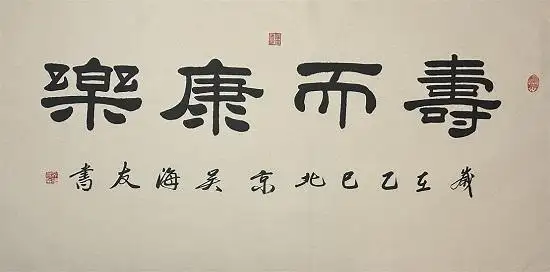 壽而康樂
歲在乙巳北京吴海友書